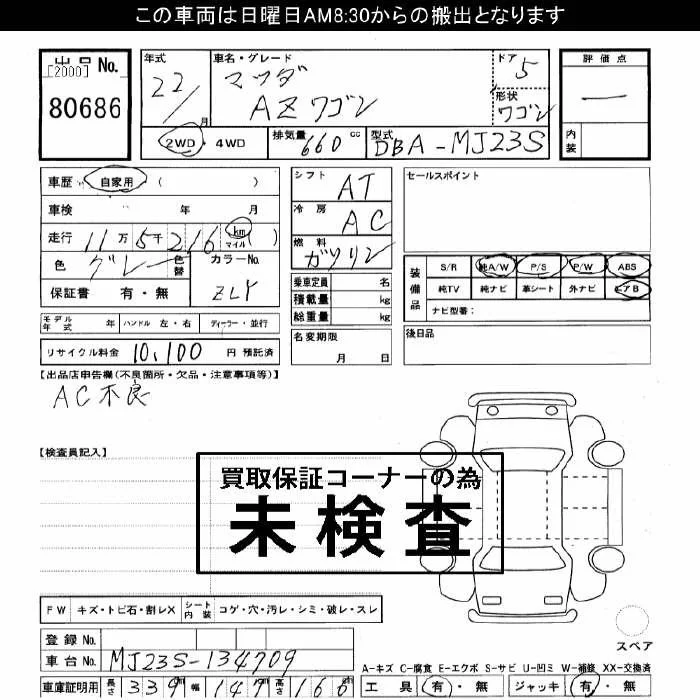 この車両は日曜日AM8:30からの搬出となります
出品No.
[2000]
80686
年式 22/ 月
車名・グレード マツダ AZワゴン
ドア 5
形状 ワゴン
2WD・4WD
排気量 660 cc
型式 DBA-MJ23S
評価点
一
内装
車歴 自家用 ( )
車検 年 月
走行 11万5千216 km マイル ( )
色 グレー 色替
カラーNo. ZLY
保証書 有・無
シフト AT
冷房 AC
燃料 ガソリン
乗車定員 名
積載量 kg
総重量 kg
セールスポイント
装備品 S/R 純A/W P/S P/W ABS
純TV 純ナビ 革シート 外ナビ エアB
ナビ型番:
モデル年式 年 ハンドル 左・右 ディーラー・並行
名変期限 月 日
後日品
リサイクル料金 10,100 円 預託済
【出品店申告欄(不良箇所・欠品・注意事項等)】
AC不良
【検査員記入】
買取保証コーナーの為
未検査
FW キズ・トビ石・割レX シート内装 コゲ・穴・汚レ・シミ・破レ・スレ
スペア
登録No.
車台No. MJ23S-134709
A-キズ C-腐食 E-エクボ S-サビ U-凹ミ W-補修 XX-交換済
車庫証明用 長さ 339 cm 幅 147 cm 高さ 166 cm
工具 有・無 ジャッキ 有・無